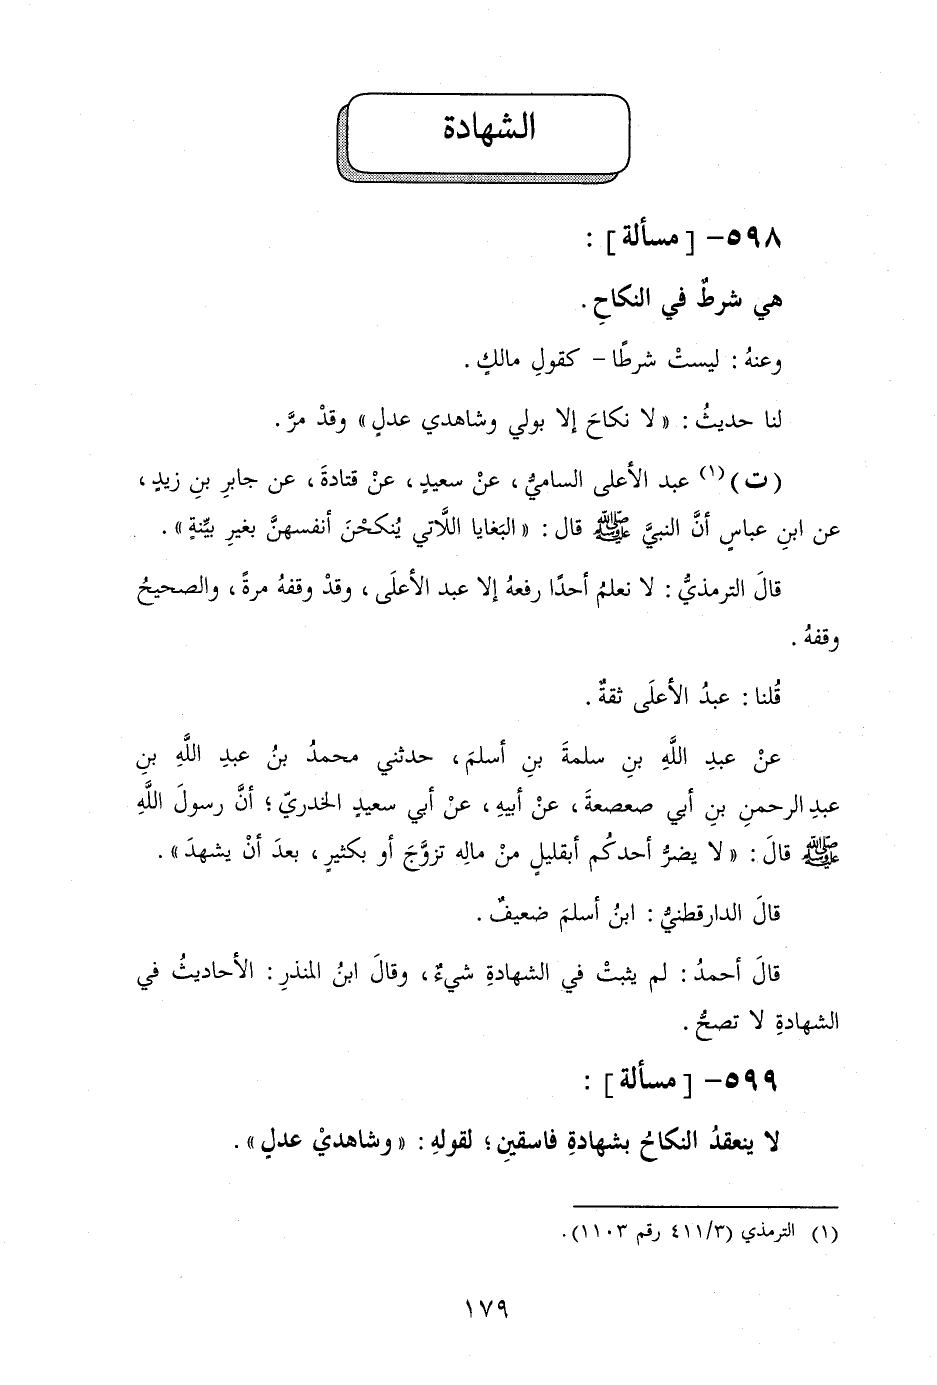 الشهادة
٥٩٨- [مسألة] :
هي شرطٌ في النكاحِ .
وعنهُ : ليستْ شرطًا - كقولِ مالكٍ .
لنا حديثُ : « لا نكاحَ إلا بولي وشاهدي عدلٍ » وقدْ مرَّ .
(ت)(١) عبد الأعلى الساميُّ ، عنْ سعيدٍ ، عنْ قتادةَ ، عن جابرِ بنِ زيدٍ ،
عن ابنِ عباسٍ أنَّ النبيَّ ﷺ قال : « البغايا اللَّاتي يُنكحْنَ أنفسهنَّ بغيرِ بيِّنةٍ » .
قالَ الترمذيُّ : لا نعلمُ أحدًا رفعهُ إلا عبد الأعلَى ، وقدْ وقفهُ مرةً ، والصحيحُ
وقفهُ .
قُلنا : عبدُ الأعلَى ثقةٌ .
عنْ عبدِ اللَّهِ بنِ سلمةَ بنِ أسلمَ ، حدثني محمدُ بنُ عبدِ اللَّهِ بنِ
عبدِ الرحمنِ بنِ أبي صعصعةَ ، عنْ أبيهِ ، عنْ أبي سعيدٍ الخدريّ ؛ أنَّ رسولَ اللَّهِ
ﷺ قالَ : « لا يضرُّ أحدكُم أبقليلٍ منْ مالِه تزوَّجَ أو بكثيرٍ ، بعدَ أنْ يشهدَ » .
قالَ الدارقطنيُّ : ابنُ أسلمَ ضعيفٌ .
قالَ أحمدُ : لم يثبتْ في الشهادةِ شيءٌ ، وقالَ ابنُ المنذرِ : الأحاديثُ في
الشهادةِ لا تصحُّ .
٥٩٩- [مسألة] :
لا ينعقدُ النكاحُ بشهادةِ فاسقينِ ؛ لقولهِ : « وشاهديْ عدلٍ » .
(١) الترمذي (٤١١/٣ رقم ١١٠٣).
١٧٩